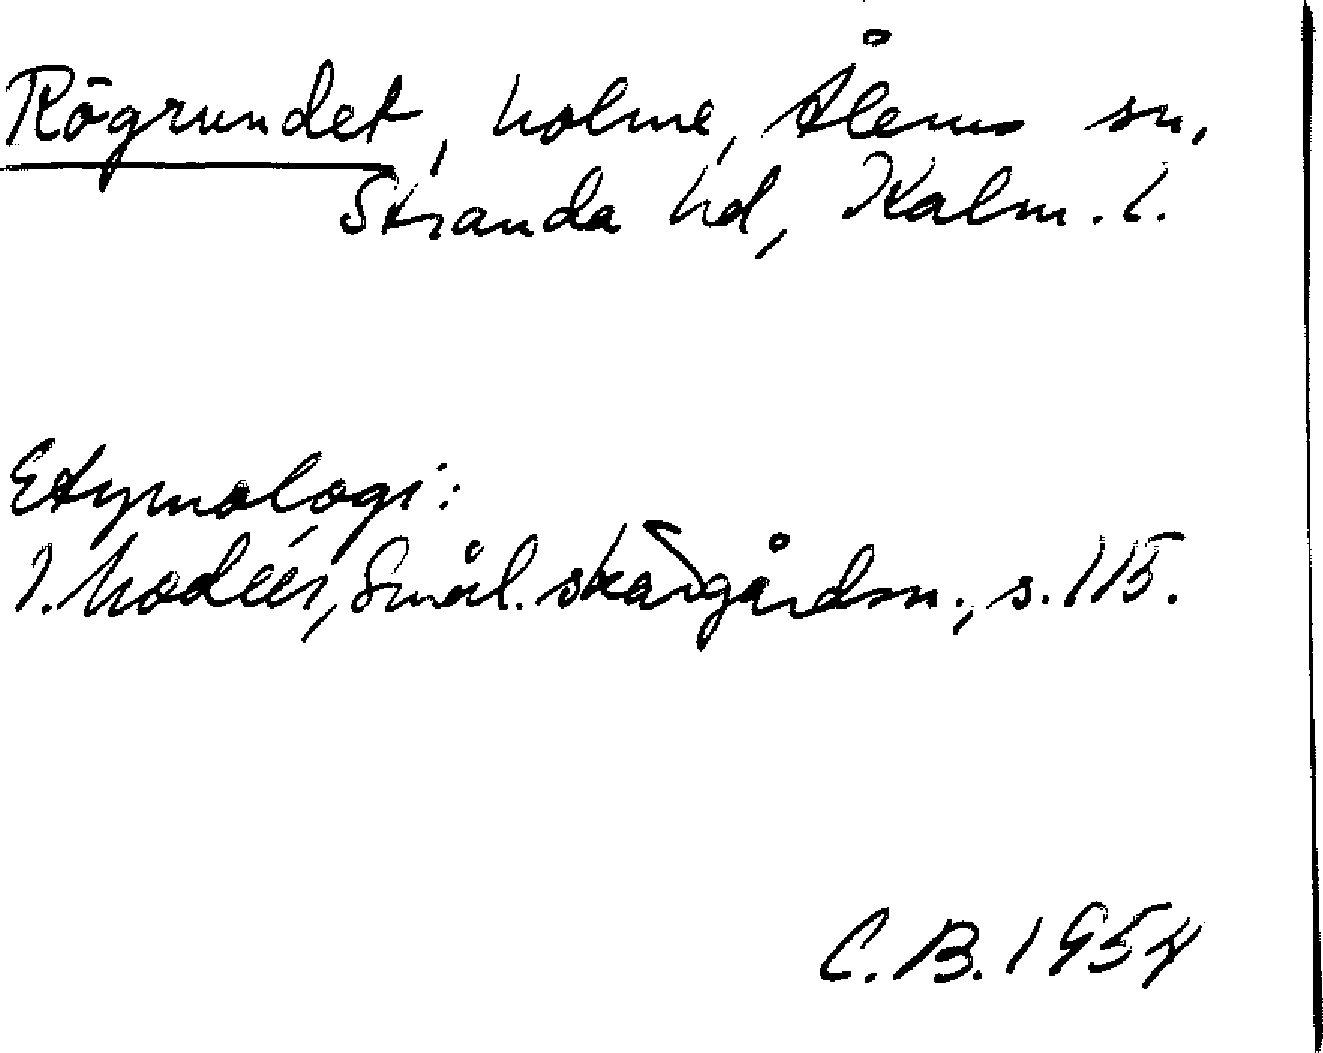 Rögrundet, holme, Ålems sn,
Stranda hd, Kalm. l.
Etymologi:
I. Modéer, Smål. skärgårdsn., s. 115.
C. B. 1954